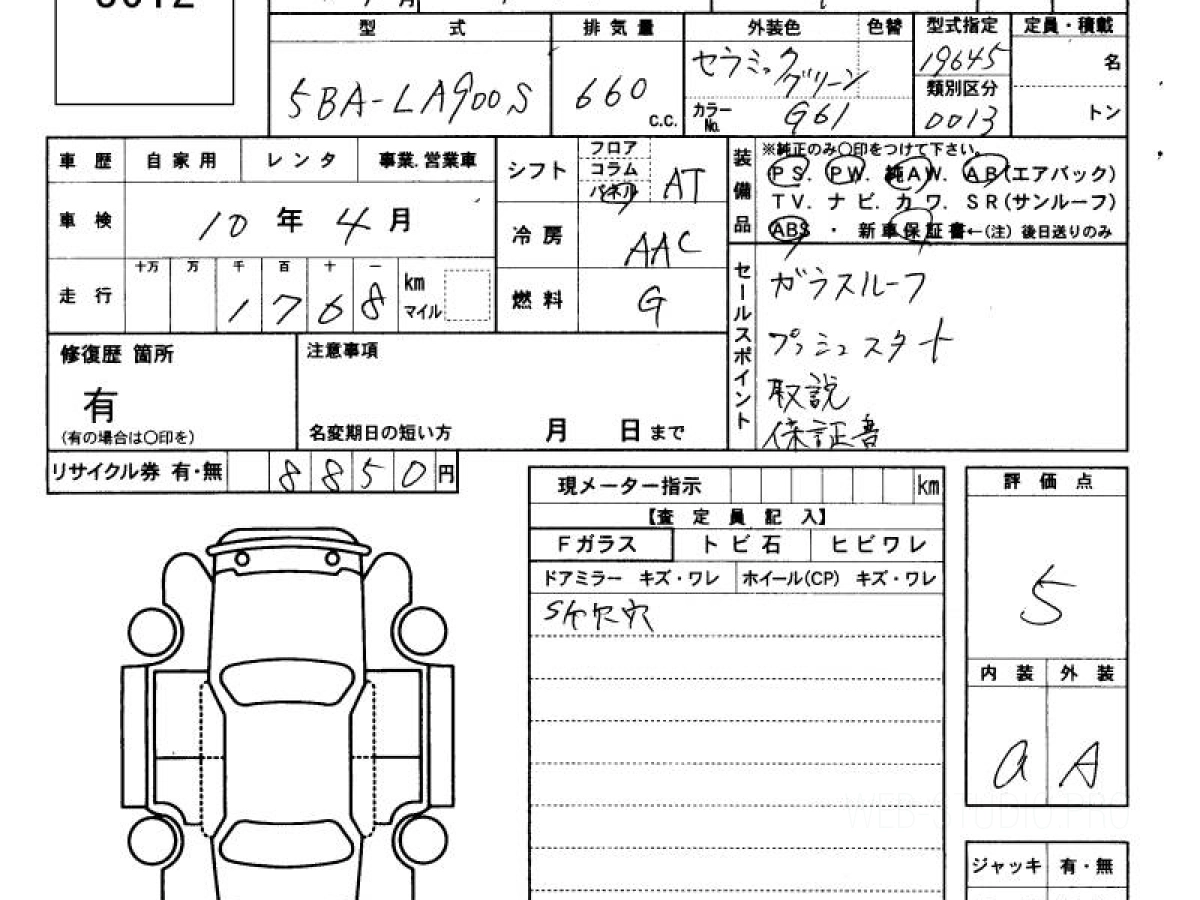 型 式 排気量 外装色 色替 型式指定 定員・積載
5BA-LA900S 660 c.c. セラミックグリーン 19645 名
カラーNo. G61 類別区分 0013 トン
車歴 自家用 レンタ 事業.営業車
車検 10年 4月
走行 十万 万 千 百 十 一 km マイル
1768
シフト フロア コラム パネル AT
冷房 AAC
燃料 G
装備品 ※純正のみ〇印をつけて下さい。
PS. PW. 純AW. AB(エアバック)
TV. ナビ. カワ. SR(サンルーフ)
ABS ・ 新車保証書←(注) 後日送りのみ
セールスポイント
ガラスルーフ
プッシュスタート
取説
保証書
修復歴 箇所
有
(有の場合は〇印を)
注意事項
名変期日の短い方 月 日まで
リサイクル券 有・無 8850円
現メーター指示 km
【査定員記入】
Fガラス トビ石 ヒビワレ
ドアミラー キズ・ワレ ホイール(CP) キズ・ワレ
評価点
5
内装 外装
a A
ジャッキ 有・無
WEB-STUDIO.PRO